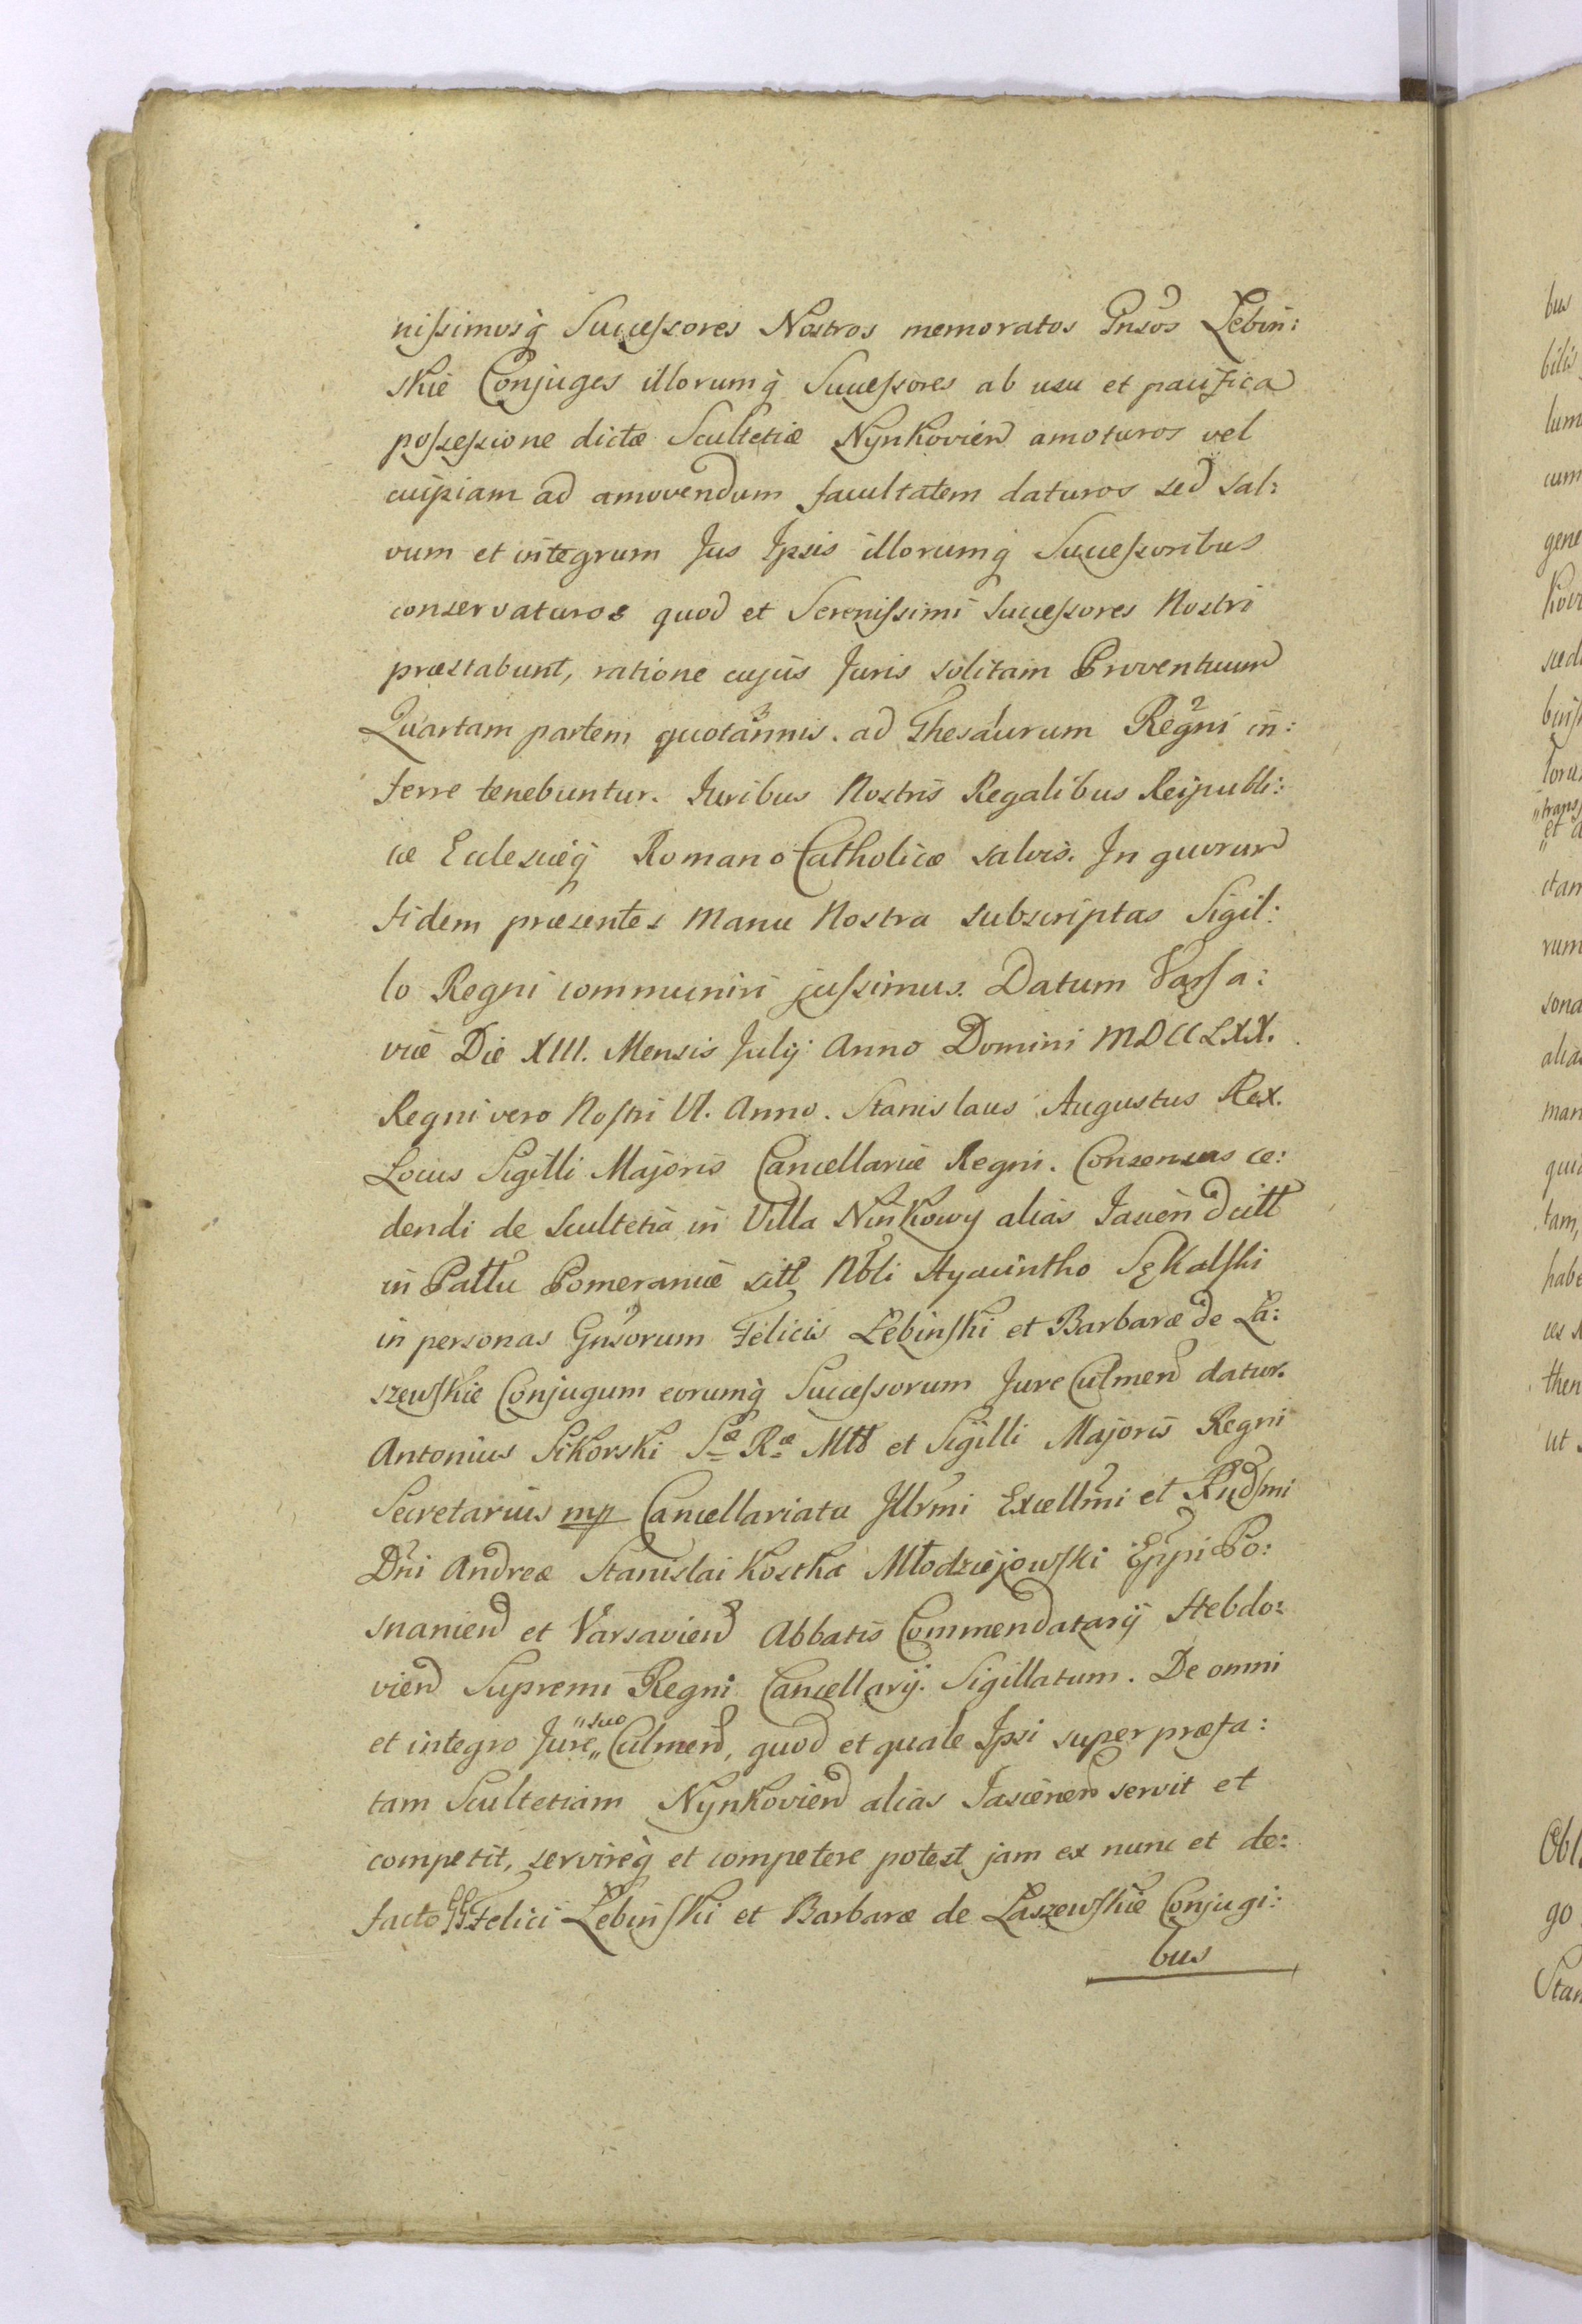 nissimosq̃ Successores Nostros memoratos Gnsos Łebin:
skie Conjuges illorumq̃ Successores ab usu et pacifica
possessione dictæ Scultetiæ Nynkovien amoturos vel
cuipiam ad amovendum facultatem daturos sed sal:
vum et integrum Jus Ipsis illorumq̃ Successoribus
conservaturos quod et Serenissimi Successores Nostri
præstabunt, ratione cujus Juris solitam Proventuum
Quartam partem quotannis. ad Thesaurum Regni in:
ferre tenebuntur. Juribus Nostris Regalibus Reipubli:
cæ Ecclesiæq̃ Romano Catholicæ salvis. In quorum
fidem præsentes Manu Nostra subscriptas Sigil:
lo Regni communiri jussimus. Datum Varsa:
viæ Die XIII. Mensis Julij Anno Domini MDCCLXX.
Regni vero Nostri VI. Anno. Stanislaus Augustus Rex.
Locus Sigilli Majoris Cancellariæ Regni. Consensus ce:
dendi de Scultetia in Villa Ninkowy alias Jasien dict
in Pattu Pomeraniæ sit Nbli Hyacintho Sękalski
in personas Gnsorum Felicis Łebinski et Barbaræ de Ła:
szewskie Conjugum eorumq̃ Successorum Jure Culmen datur.
Antonius Sikorski Sæ Ræ Mtt et Sigilli Majoris Regni
Secretarius mp Cancellariatu Illrmi Excellmi et Rndsmi
Dni Andreæ Stanislai Kostka Młodziejowski Eppi Po:
snanien et Varsavien Abbatis Commendatarij Hebdo:
vien Supremi Regni Cancellarij. Sigillatum. De omni
et integro Jure „suo „ Culmen, quod et quale Ipsi super præfa:
tam Scultetiam Nynkovien alias Jasienen servit et
competit, servireq̃ et competere potest jam ex nunc et de:
facto GG Felici Łebinski et Barbaræ de Łaszewskie Conjugi:
bus